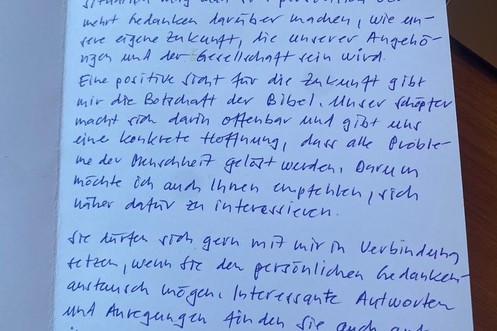 mehr Gedanken darüber machen, wie un-
sere eigene Zukunft, die unserer Angehö-
rigen und der Gesellschaft sein wird.
Eine positive Sicht für die Zukunft gibt
mir die Botschaft der Bibel. Unser Schöpfer
macht sich darin offenbar und gibt uns
eine konkrete Hoffnung, dass alle Proble-
me der Menschheit gelöst werden. Darum
möchte ich auch Ihnen empfehlen, sich
näher dafür zu interessieren.
Sie dürfen sich gern mit mir in Verbindung
setzen, wenn Sie den persönlichen Gedanken-
austausch mögen. Interessante Antworten
und Anregungen finden Sie auch auf